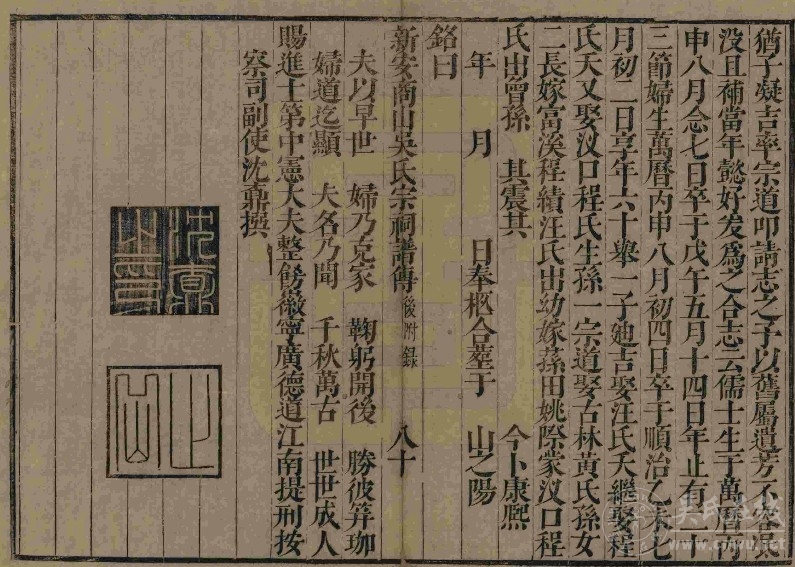 猶子凝吉率宗道叩請志之予以舊屬遺芳不容湮
没且補當年懿好爰爲之合志云儒士生于萬曆丙
申八月念七日卒于戊午五月十四日年止有二十
三節婦生萬曆丙申八月初四日卒于順治乙未七
月初二日享年六十舉一子廸吉娶汪氏夭繼娶程
氏夭又娶汊口程氏生孫一宗道娶古林黃氏孫女
二長嫁富溪程績汪氏出幼嫁蓀田姚際蒙汊口程
氏出曾孫 其震其 今卜康熙
年 月 日奉柩合塟于 山之陽
銘曰
新安商山吳氏宗祠譜傳 後附録 八十
夫以早世 婦乃克家 鞠躬開後 勝彼笄珈
婦道迄顯 夫名乃聞 千秋萬古 世世成人
賜進士第中憲大夫整飭徽寧廣德道江南提刑按
察司副使沈鼐撰
沈鼐之印
止山